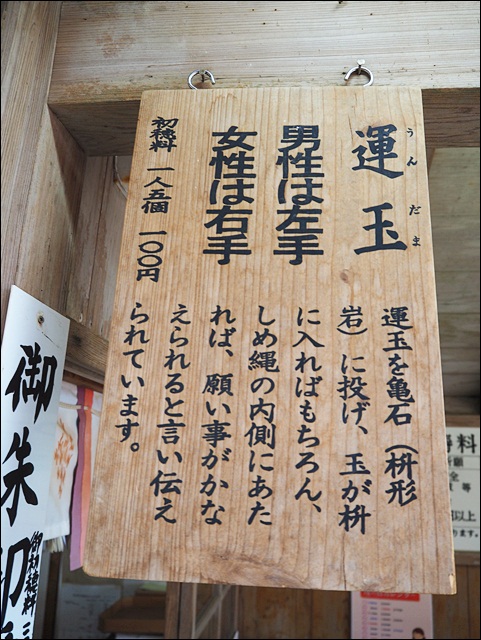 運玉
うんだま
男性は左手
女性は右手
初穂料 一人五個 一〇〇円
運玉を亀石(枡形
岩)に投げ、玉が枡
に入ればもちろん、
しめ縄の内側にあた
れば、願い事がかな
えられると言い伝え
られています。
御朱印
御初穂料 三
料
以上
ます。